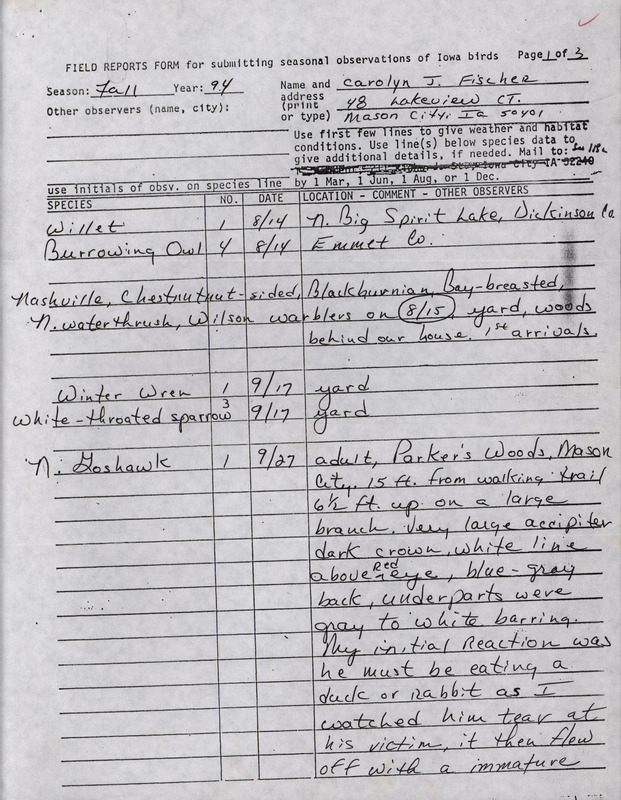 FIELD REPORTS FORM for submitting seasonal observations of Iowa birds Page 1 of 3
Season: Fall Year: 94
Other observers (name, city):
Name and address (print or type)
Carolyn J. Fischer
48 Lakeview CT.
Mason City, Ia 50401
Use first few lines to give weather and habitat
conditions. Use line(s) below species data to
give additional details, if needed. Mail to:
Iowa City IA 52240
by 1 Mar, 1 Jun, 1 Aug, or 1 Dec.
use initials of obsv. on species line
SPECIES NO. DATE LOCATION - COMMENT - OTHER OBSERVERS
Willet 1 8/14 N. Big Spirit Lake, Dickinson Co.
Burrowing Owl 4 8/14 Emmet Co.
Nashville, Chestnutnut-sided, Blackburnian, Bay-breasted,
N. waterthrush, Wilson warblers on 8/15, yard, woods
behind our house. 1st arrivals.
Winter Wren 1 9/17 yard
White-throated sparrow 3 9/17 yard
N. Goshawk 1 9/27 adult, Parker's Woods, Mason
City. 15 ft. from walking trail
6½ ft. up on a large
branch. Very large accipiter
dark crown, white line
above red eye, blue-gray
back, underparts were
gray to white barring.
My initial Reaction was
he must be eating a
duck or Rabbit as I
watched him tear at
his victim, it then flew
off with a immature